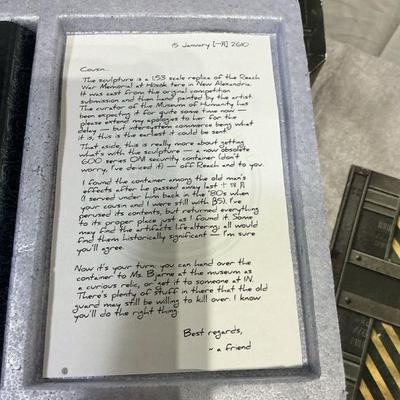 15 January [一月] 2610
Cousin...
The sculpture is a 1:53 scale replica of the Reach
War Memorial at Hősök tere in New Alexandria.
It was cast from the original competition
submission and then hand painted by the artist.
The curator of the Museum of Humanity has
been expecting it for quite some time now —
please extend my apologies to her for the
delay — but inter-system commerce being what
it is, this is the earliest it could be sent.
That aside, this is really more about getting
what's with the sculpture — a now obsolete
600 series ONI security container (don't
worry, I've deiced it) — off Reach and to you.
I found the container among the old man's
effects after he passed away last 十一月
(I served under him back in the '80s when
your cousin and I were still with β5). I've
perused its contents, but returned everything
to its proper place just as I found it. Some
may find the artifacts life-altering; all would
find them historically significant — I'm sure
you'll agree.
Now it's your turn; you can hand over the
container to Ms. Bjarne at the museum as
a curious relic, or get it to someone at IN.
There's plenty of stuff in there that the old
guard may still be willing to kill over. I know
you'll do the right thing.
Best regards,
~ a friend